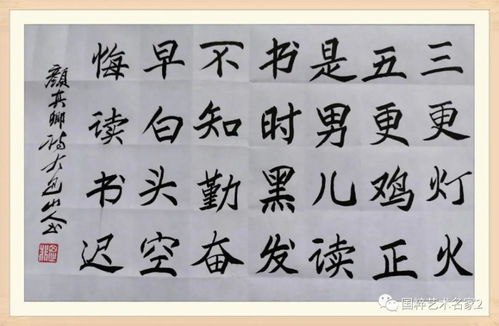 三更灯火
五更鸡正
是男儿读
书时黑发
不知勤奋
早白头空
悔读书迟
颜真卿诗
国粹艺术名家2